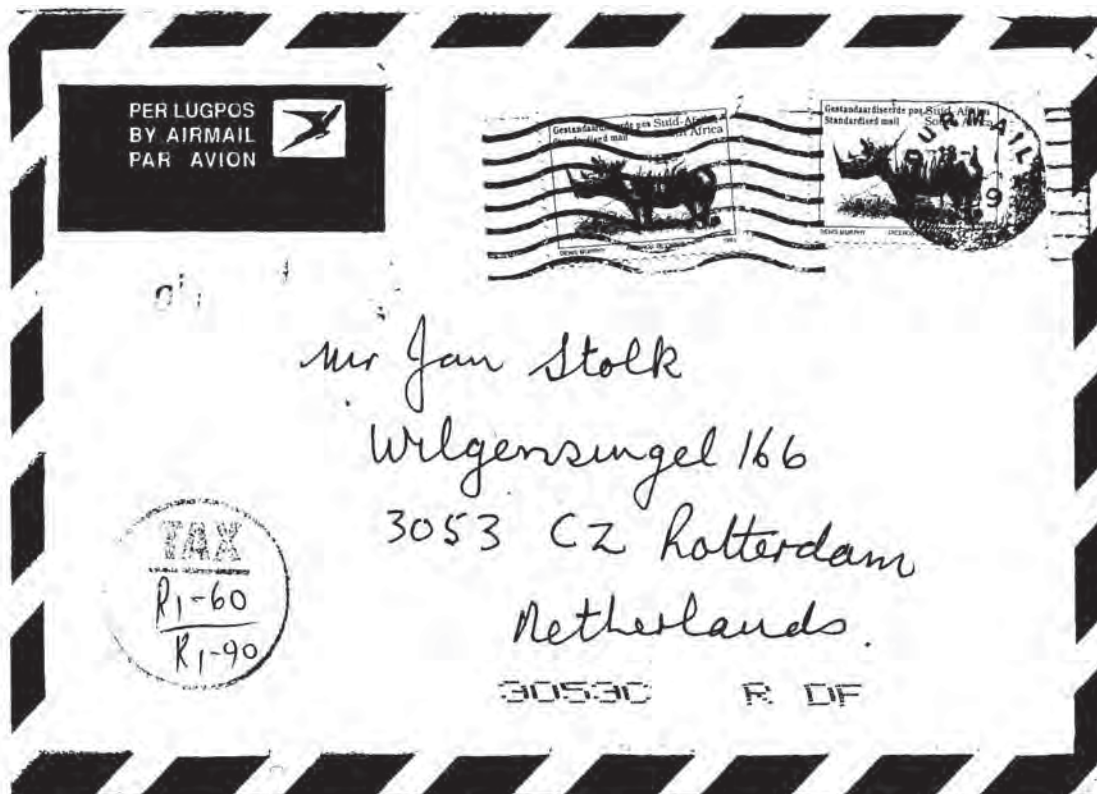 PER LUGPOS
BY AIRMAIL
PAR AVION
Gestandaardiseerde pos Suid-Afrika
Standardised mail South Africa
Gestandaardiseerde pos Suid-Afrika
Standardised mail
DENIS MURPHY
DENIS MURPHY
URMAIL
9
Mr Jan Stolk
Wilgensingel 166
3053 CZ Rotterdam
Netherlands.
TAX
R1-60
R1-90
3053C R DF